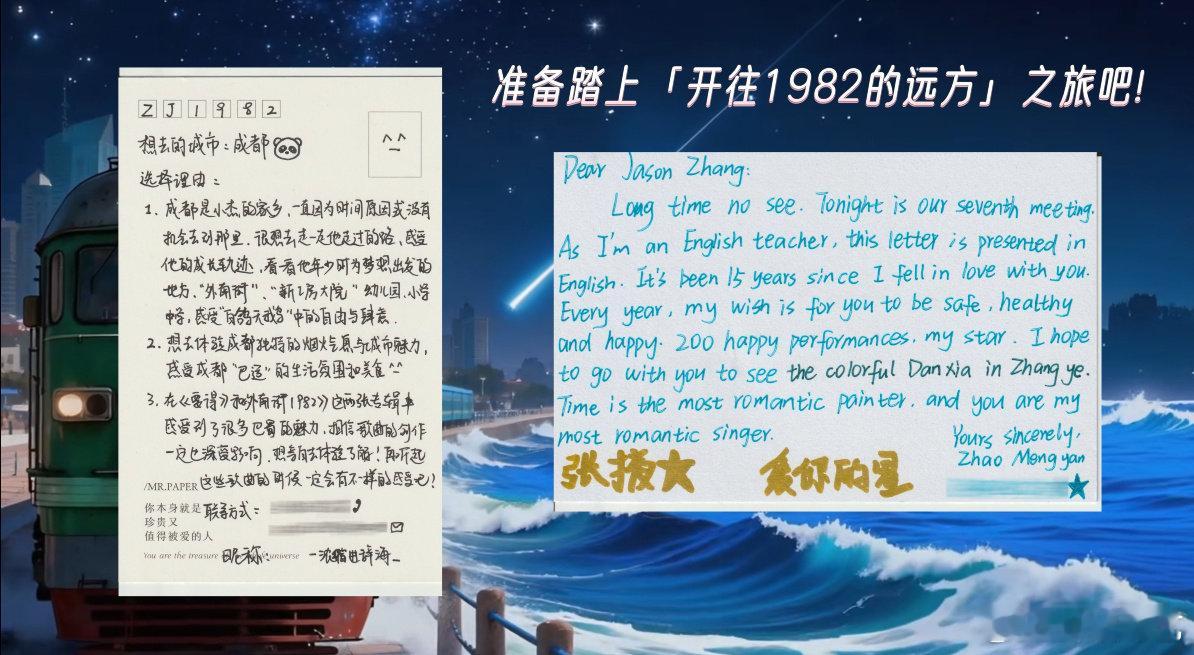 准备踏上「开往1982的远方」之旅吧!
ZJ1982
想去的城市：成都
选择理由：
1. 成都是小杰的家乡，一直因为时间原因或没有
机会去到那里. 很想去走一走他走过的路，感受
他的成长轨迹，看看他年少时为梦想出发的
地方，"外南街"、"新工房大院" 幼儿园、小学
中学，感受"白鸽天我亮"中的自由与肆意.
2. 想去体验成都独特的烟火气息与城市魅力，
感受成都"巴适"的生活氛围和美食^^
3. 在《要得》和《外南街1982》这两张专辑中
感受到了很多巴蜀的魅力，相信歌曲的创作
一定也深受影响，想亲自去体验了解！再听起
这些歌曲的时候一定会有不一样的感受吧！
/MR.PAPER
你本身就是
珍贵又
值得被爱的人
联系方式：
You are the treasure universe
昵称：
Dear Jason Zhang:
Long time no see. Tonight is our seventh meeting.
As I'm an English teacher, this letter is presented in
English. It's been 15 years since I fell in love with you.
Every year, my wish is for you to be safe, healthy
and happy. 200 happy performances, my star. I hope
to go with you to see the colorful Danxia in Zhangye.
Time is the most romantic painter, and you are my
most romantic singer.
Yours sincerely,
Zhao Mengyan
张掖 爱你的星